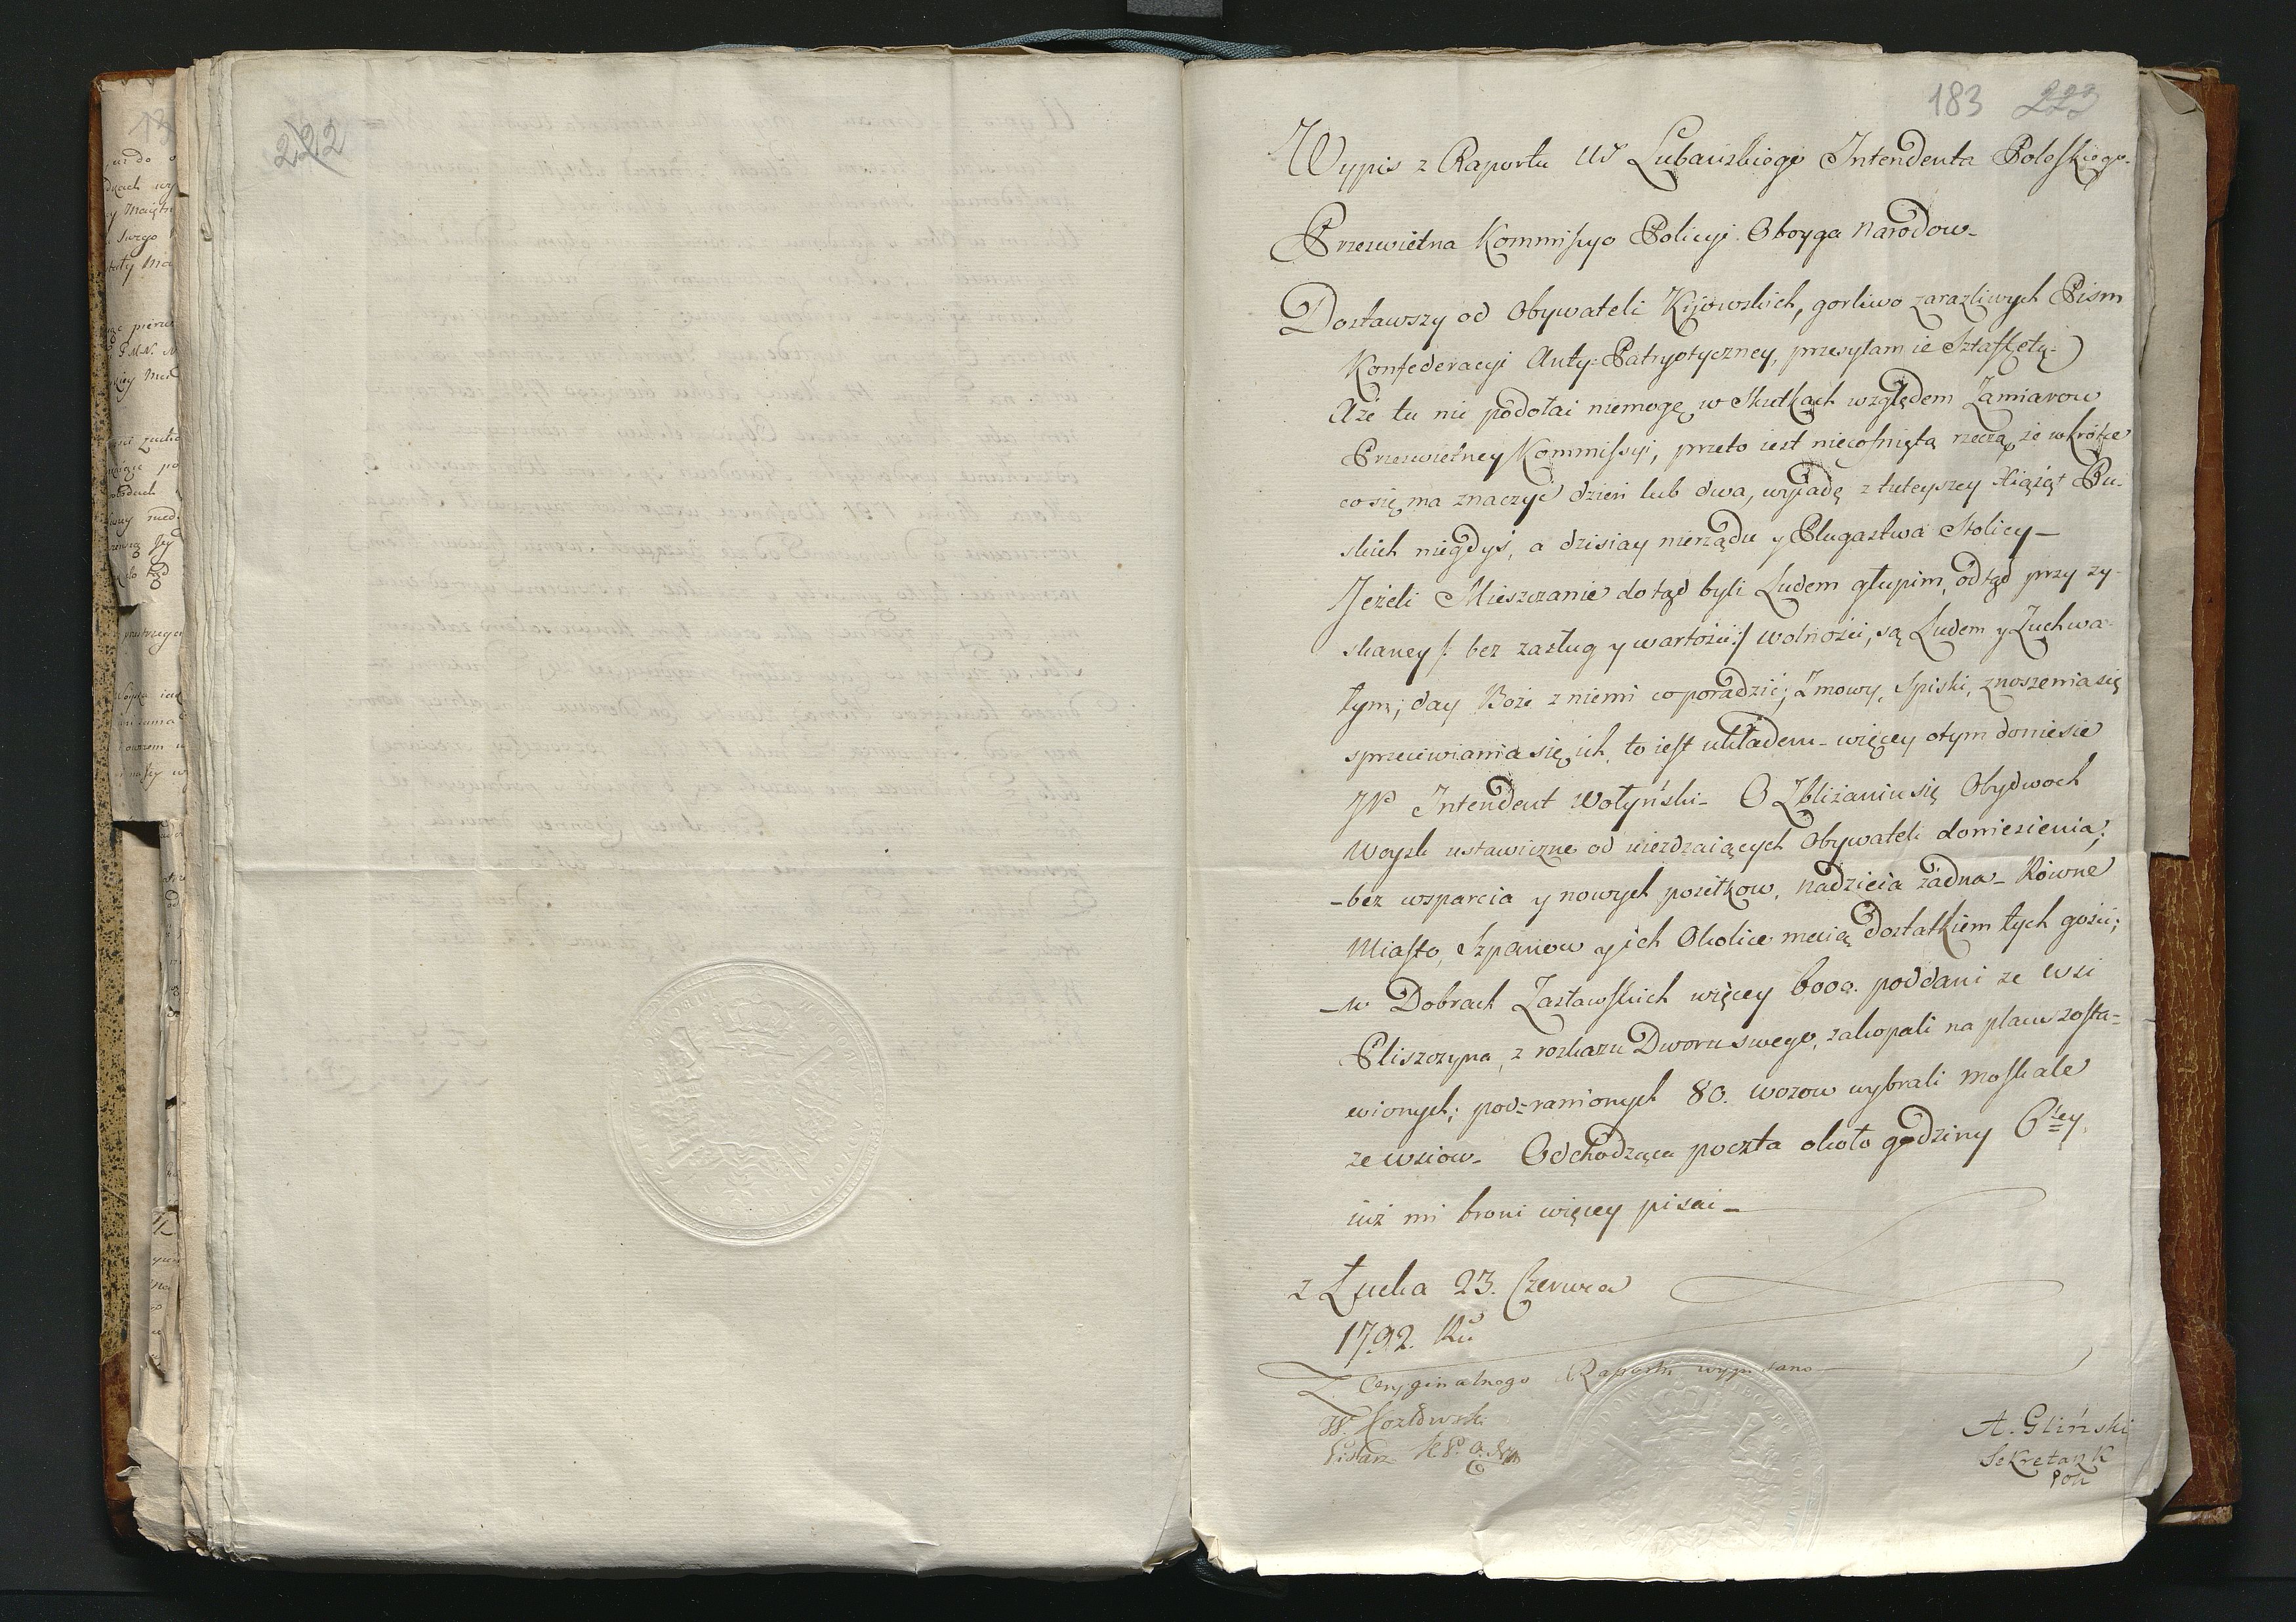 222
183 223
Wypis z Raportu W Lubańskiego Intendenta Poleskiego.
Prześwietna Kommissyo Policyi Oboyga Narodow_
Dostawszy od Obywateli Kijowskich, gorliwo zarazliwych Pism
Konfederacyi Anty=Patryotyczney, przesyłam ie Sztaffetą.
Aże tu nic podołai niemogę w Skutkach względem Zamiarow
Prześwietney Kommissyi, przeto iest niecofniętą rzeczą, że wkrótce
co się ma znaczyć dzień lub dwa, wyjadę z tuteyszey Xiążąt Ru-
skich niegdyś, a dzisiay nierządu y Plugastwa Stolicy_
Jeżeli Mieszczanie dotąd byli Ludem głupim, odtąd przy zy-
skaney /: bez zasług y wartości :/ wolności, są Ludem y Zuchwa-
łym; day Boże z niemi co poradzić; Zmowy, Spiski, znoszenia się
sprzeciwiania się ich, to iest układem_ więcey otym doniesie
JP Intendent Wołyński_ O Zbliżaniu się Obydwoch
Woysk ustawiczne od uieżdzaiących Obywateli doniesienia;
_bez wsparcia y nowych posiłkow, nadzieia żadna_ Rowne
Miasto, Szpanow y ich Okolice maią dostatkiem tych gości;
_w Dobrach Zasławskich więcey 6000. poddani ze wsi
Pliszczyna, z roskazu Dworu swego, zakopali na placu zosta=
wionych; pod=ranionych 80. wozow wybrali Moskale
ze wsiow_ Odchodząca poczta około godziny 6tey
iuż mi broni więcey pisai_
z Łucka 23. Czerwca
1792. Ru
Z Oryginalnego Raportu wypisano
W. Kozłowski
Pisarz K. P. O. N.
A. Gliński
Sekretarz K
Poli